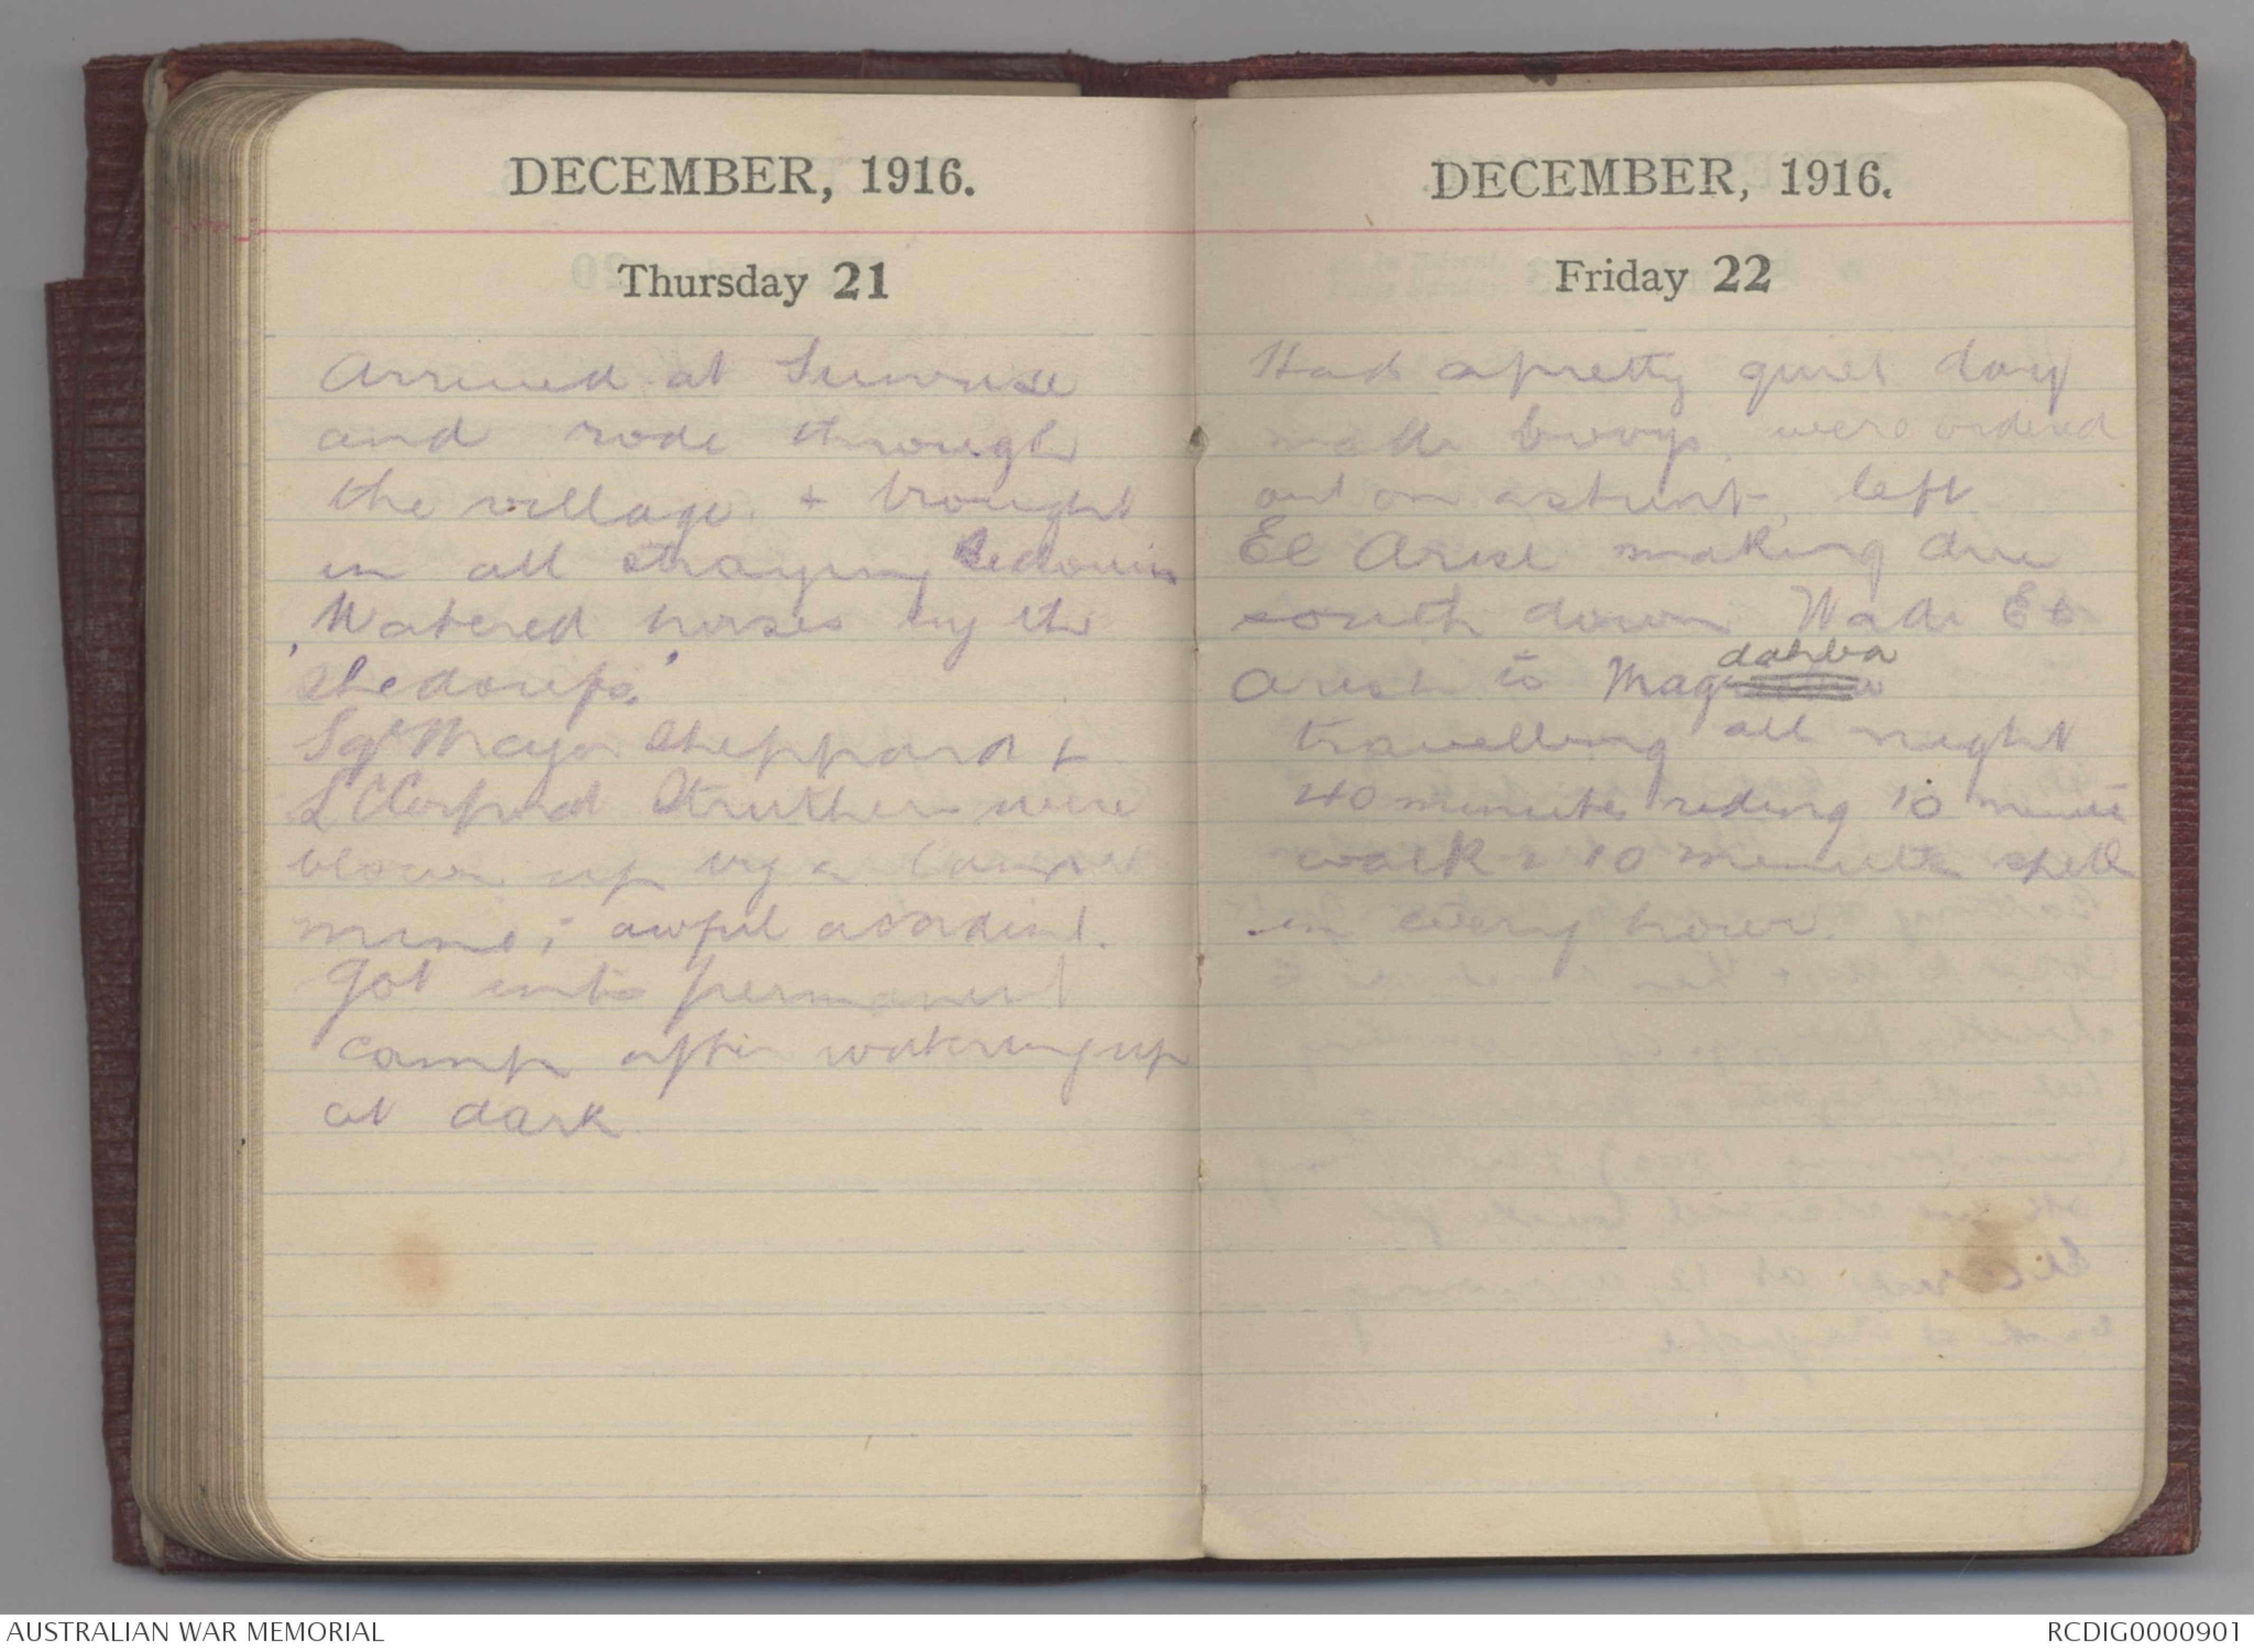 DECEMBER, 1916.
Thursday 21
Arrived at Sunrise
and rode through
the village. + brought
in all straying Bedouins
Watered horses by the
'Shedoufs.'
Sgt Major Sheppard +
L Corporal Struthers were
blown up by a
mine; awful accident.
Got into permanent
camp after watering up
at dark
DECEMBER, 1916.
Friday 22
Had a pretty quiet day
made were ordered
out on a stunt, left
El Arish making due
south down Wadi El
dahba
Arish to Mag
travelling all night
40 minutes riding 10 minute
walk & 10 minutes spell
in every hour.
AUSTRALIAN WAR MEMORIAL
RCDIG0000901